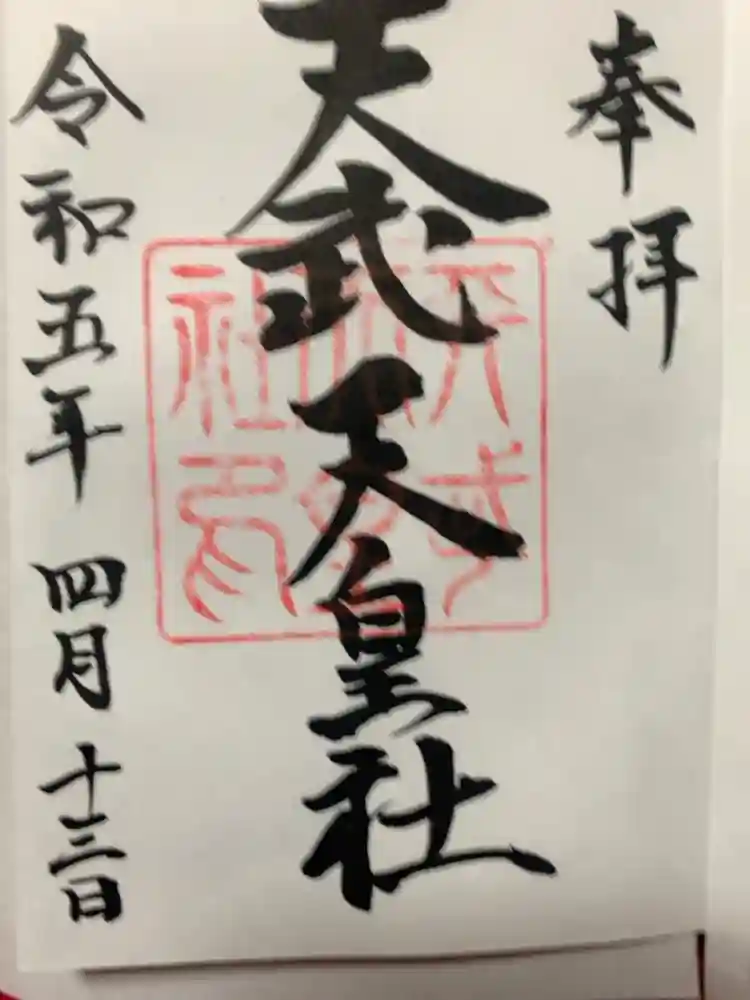 奉拝
天武天皇社
令和五年四月十三日